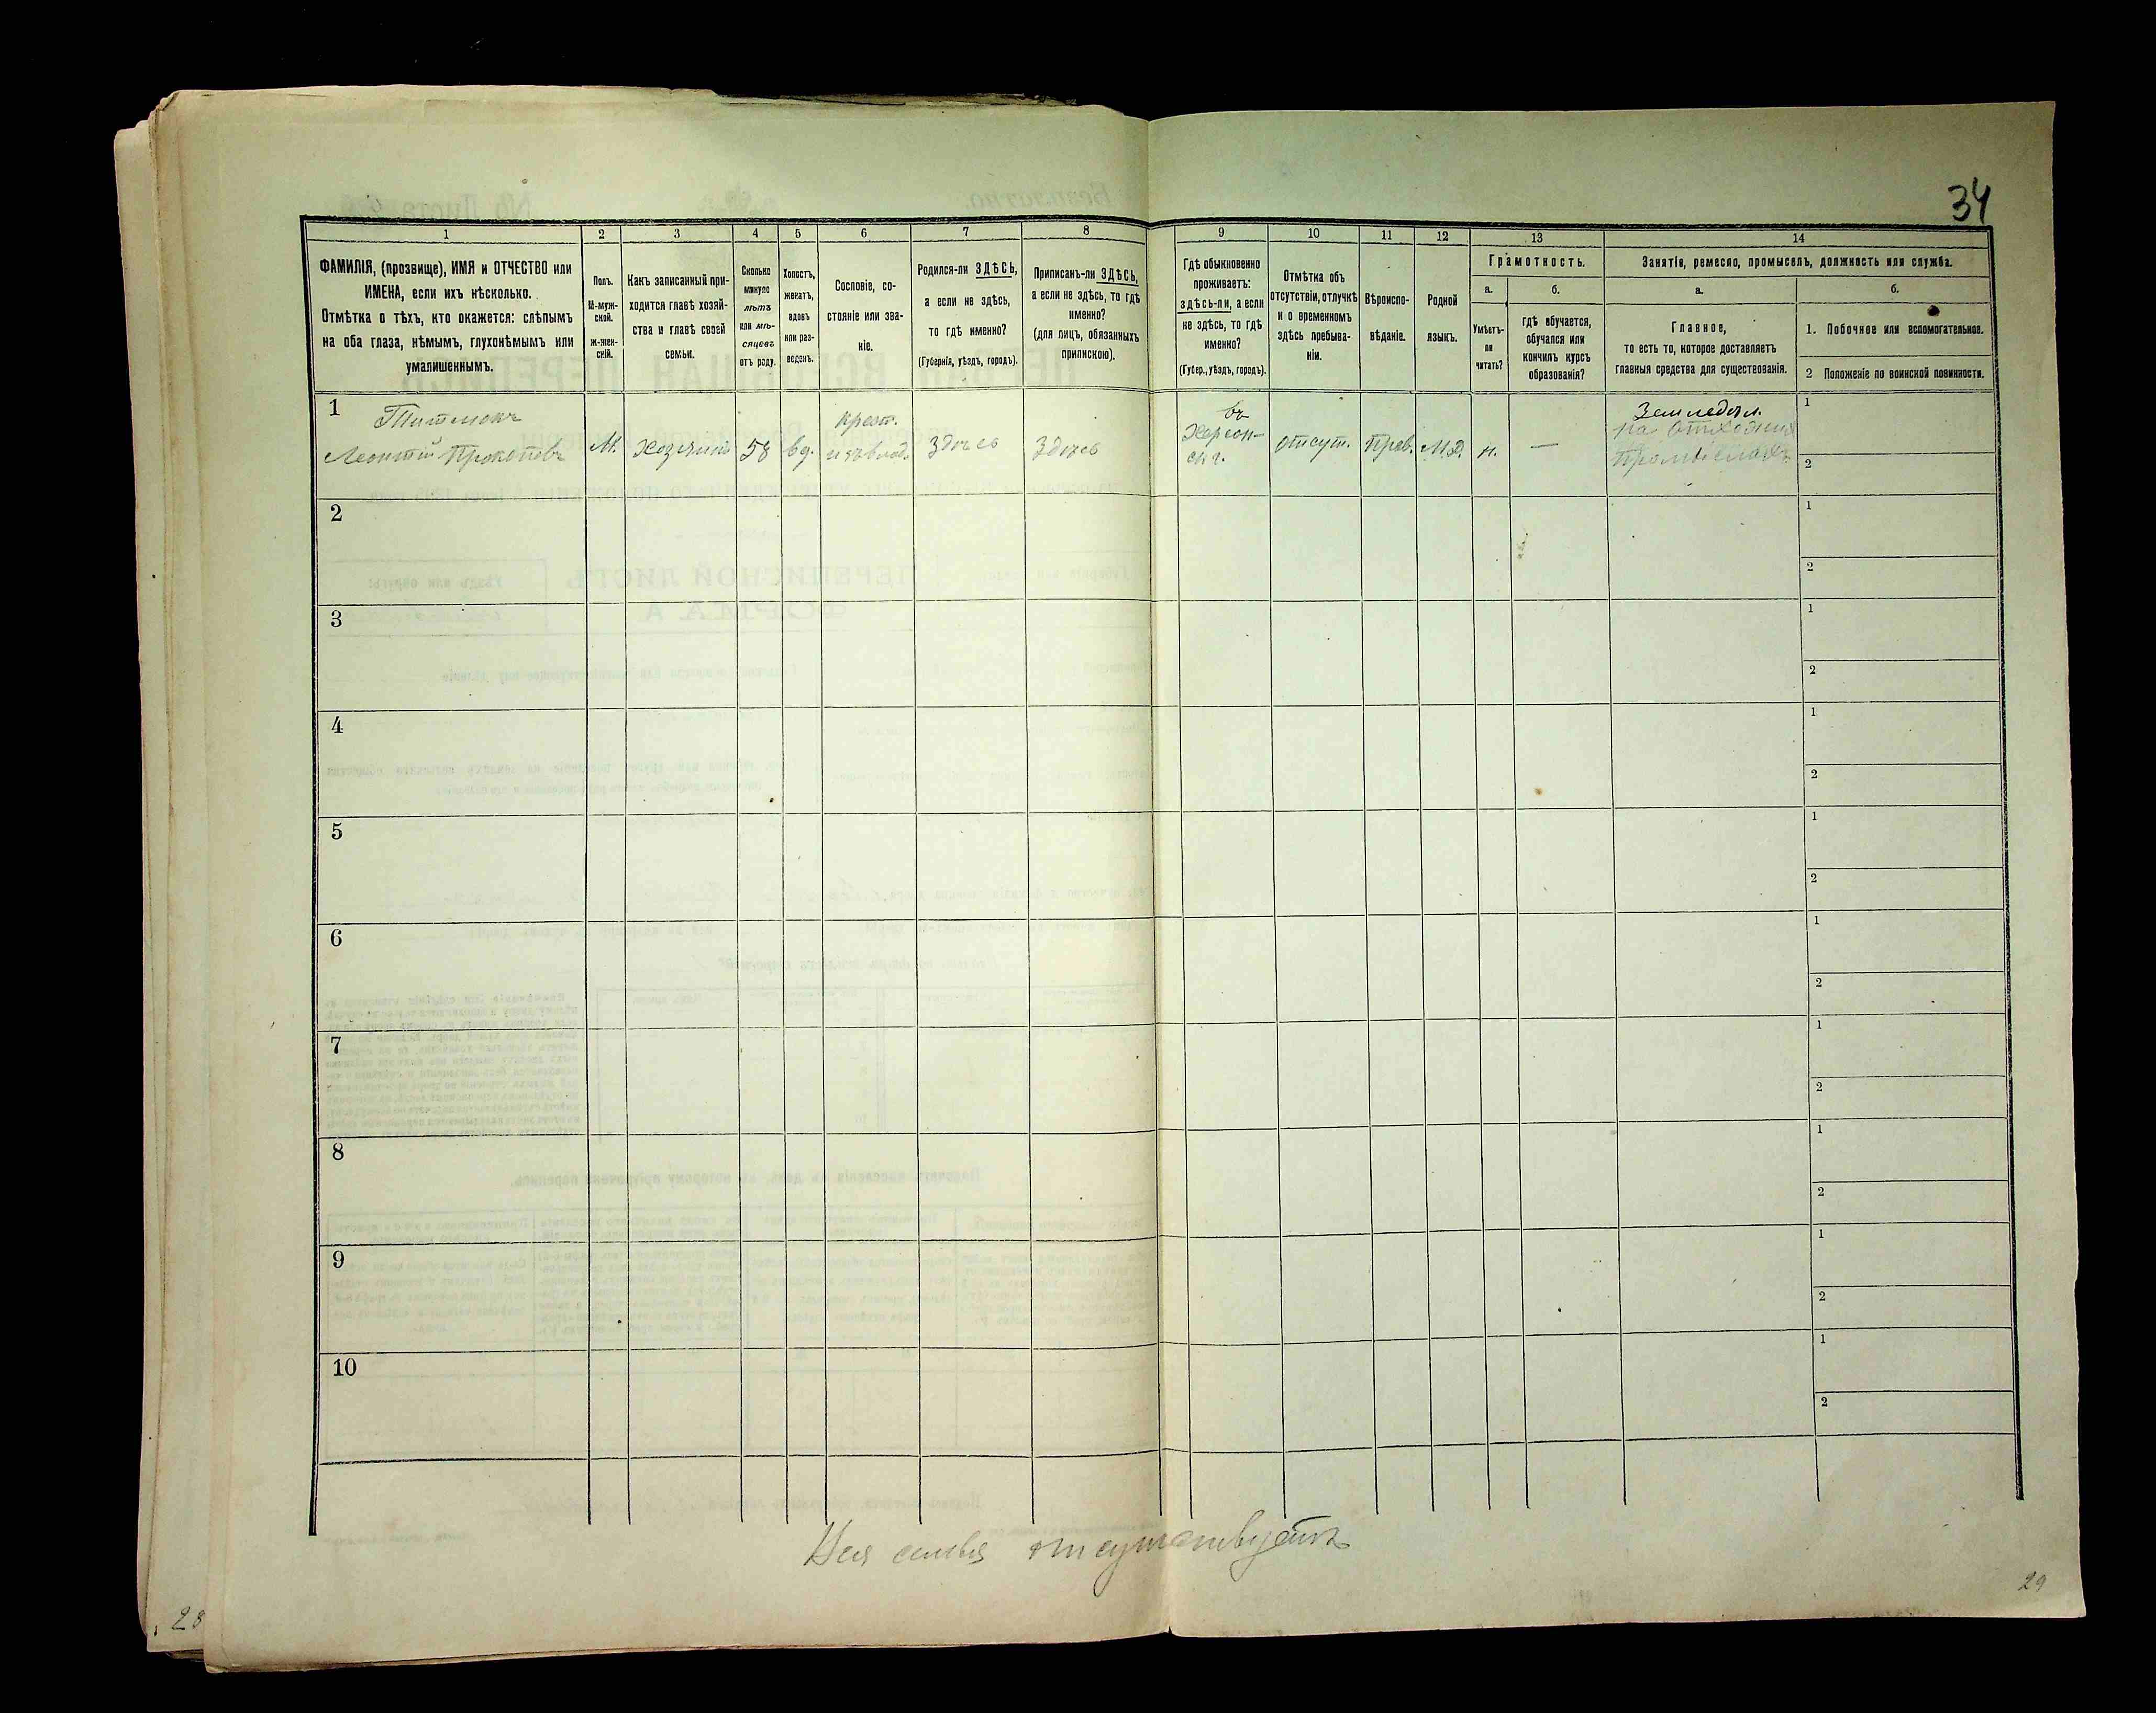 34
1 2 3 4 5 6 7 8 9 10 11 12 13 14
ФАМИЛІЯ, (прозвище), ИМЯ и ОТЧЕСТВО или
ИМЕНА, если ихъ нѣсколько.
Отмѣтка о тѣхъ, кто окажется: слѣпымъ
на оба глаза, нѣмымъ, глухонѣмымъ или
умалишеннымъ.
Полъ.
М-муж-
ской.
Ж-жен-
скій.
Какъ записанный при-
ходится главѣ хозяй-
ства и главѣ своей
семьи.
Сколько
минуло
лѣтъ
или мѣ-
сяцевъ
отъ роду.
Холостъ,
женатъ,
вдовъ
или раз-
веденъ.
Сословіе, со-
стояніе или зва-
ніе.
Родился-ли ЗДѢСЬ,
а если не здѣсь,
то гдѣ именно?
(Губернія, уѣздъ, городъ).
Приписанъ-ли ЗДѢСЬ,
а если не здѣсь, то гдѣ
именно?
(для лицъ, обязанныхъ
припискою).
Гдѣ обыкновенно
проживаетъ:
здѣсь-ли, а если
не здѣсь, то гдѣ
именно?
(Губер., уѣздъ, городъ).
Отмѣтка объ
отсутствіи, отлучкѣ
и о временномъ
здѣсь пребыва-
ніи.
Вѣроиспо-
вѣданіе.
Родной
языкъ.
Грамотность.
а.
Умѣетъ-
ли
читать?
б.
гдѣ обучается,
обучался или
кончилъ курсъ
образованія?
Занятіе, ремесло, промыселъ, должность или служба.
а.
Главное,
то есть то, которое доставляетъ
главныя средства для существованія.
б.
1. Побочное или вспомогательное.
2 Положеніе по воинской повинности.
1
Леонтій Прокоповъ
М.
Хозяинъ
58
вд.
крест.
Здѣсь
Здѣсь
въ
Херсон-
ск г.
отсут.
Прав.
М.д.
н.
—
Земледѣл.
на отхожихъ
промыслахъ
1
2
2
1
2
3
1
2
4
1
2
5
1
2
6
1
2
7
1
2
8
1
2
9
1
2
10
1
2
Вся семья отсутствуетъ
28
29